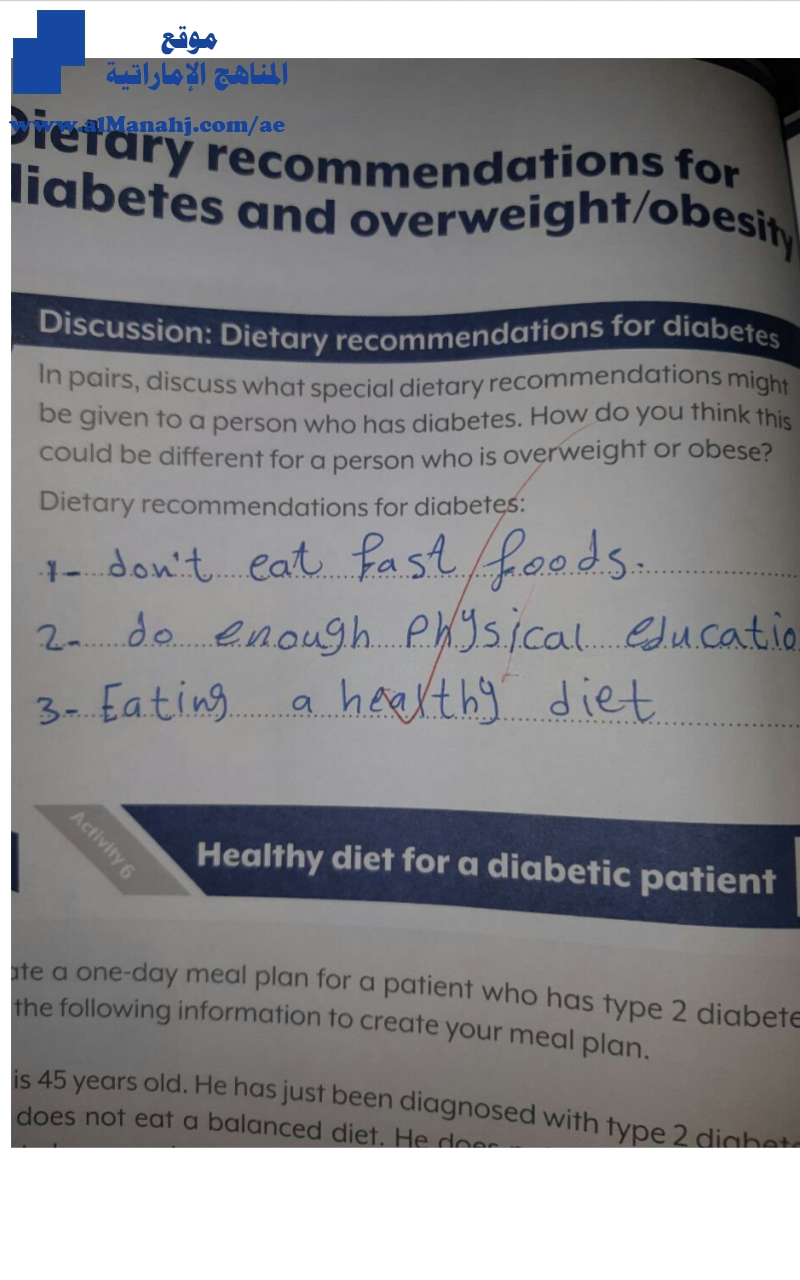 موقع
المناهج الإماراتية
www.alManahj.com/ae
Dietary recommendations for
diabetes and overweight/obesity
Discussion: Dietary recommendations for diabetes
In pairs, discuss what special dietary recommendations might
be given to a person who has diabetes. How do you think this
could be different for a person who is overweight or obese?
Dietary recommendations for diabetes:
1- don't eat fast foods.
2- do enough physical educatio
3- Eating a healthy diet
Activity 6
Healthy diet for a diabetic patient
ate a one-day meal plan for a patient who has type 2 diabete
the following information to create your meal plan.
is 45 years old. He has just been diagnosed with type 2 diabete
does not eat a balanced diet. He does